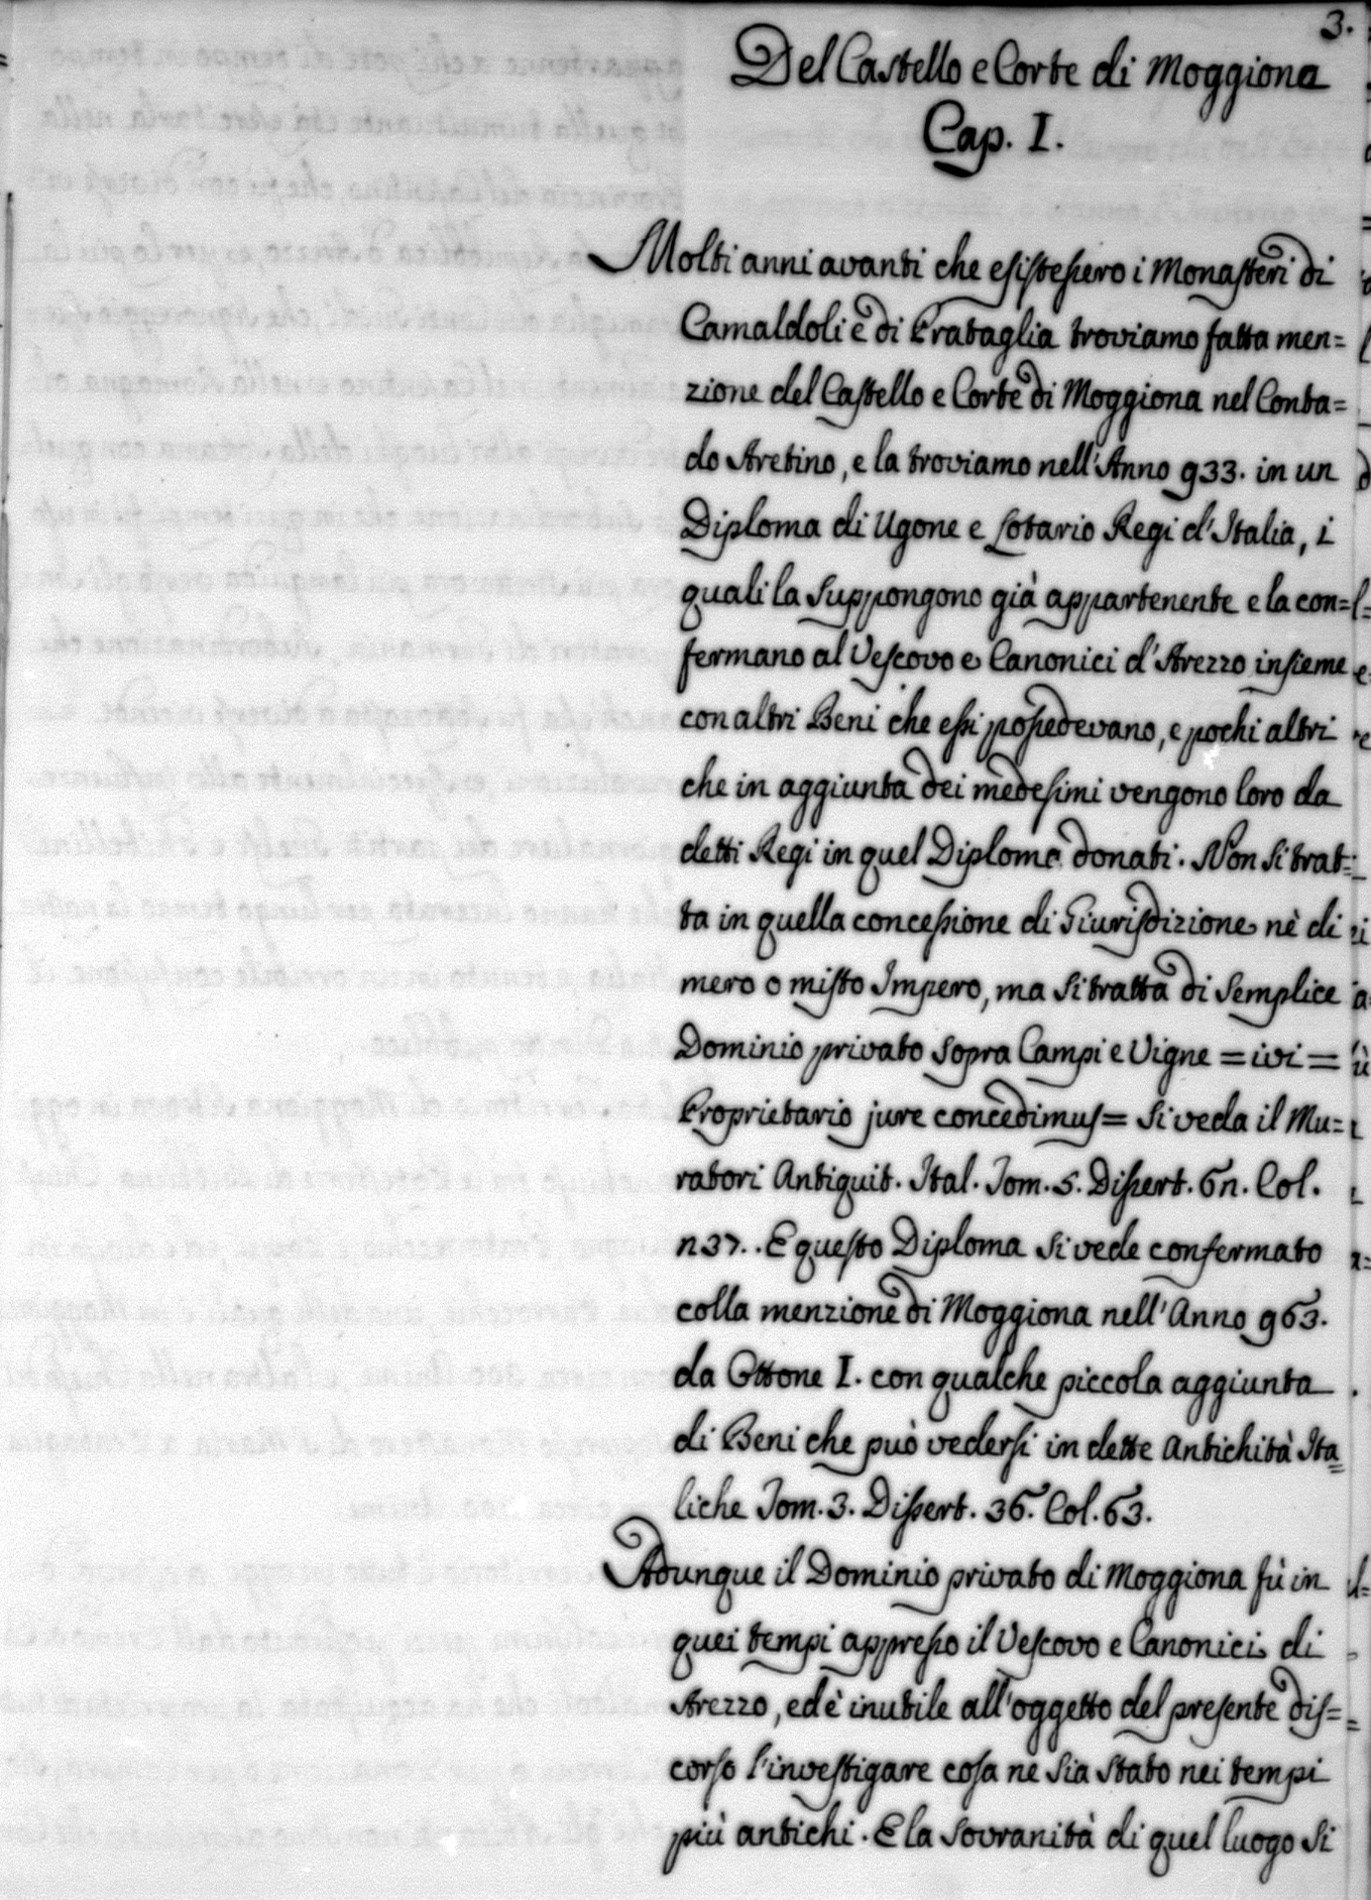 3.
Del Castello e Corte di Moggiona
Cap. I.
Molti anni avanti che esistessero i Monasteri di
Camaldoli e di Prataglia troviamo fatta men=
zione del Castello e Corte di Moggiona nel Conta=
do Aretino, e la troviamo nell'Anno 933. in un
Diploma di Ugone e Lotario Regi d'Italia, i
quali la Suppongono già appartenente e la con=
fermano al Vescovo e Canonici d'Arezzo insieme
con altri Beni che essi possedevano, e pochi altri
che in aggiunta dei medesimi vengono loro da
detti Regi in quel Diploma donati. Non Si trat=
ta in quella concessione di Giurisdizione nè di
mero o misto Impero, ma Si tratta di Semplice
Dominio privato Sopra Campi e Vigne = ivi =
Proprietario jure concedimus = Si veda il Mu=
ratori Antiquit. Ital. Tom. 5. Dissert. 6n. Col.
n37.. E questo Diploma Si vede confermato
colla menzione di Moggiona nell'Anno 963.
da Ottone I. con qualche piccola aggiunta
di Beni che può vedersi in dette Antichità Ita=
liche Tom. 3. Dissert. 36. Col. 63.
Adunque il Dominio privato di Moggiona fù in
quei tempi appresso il Vescovo e Canonici di
Arezzo, ed è inutile all'oggetto del presente dis=
corso l'investigare cosa ne Sia Stato nei tempi
più antichi. E la Sovranità di quel luogo Si